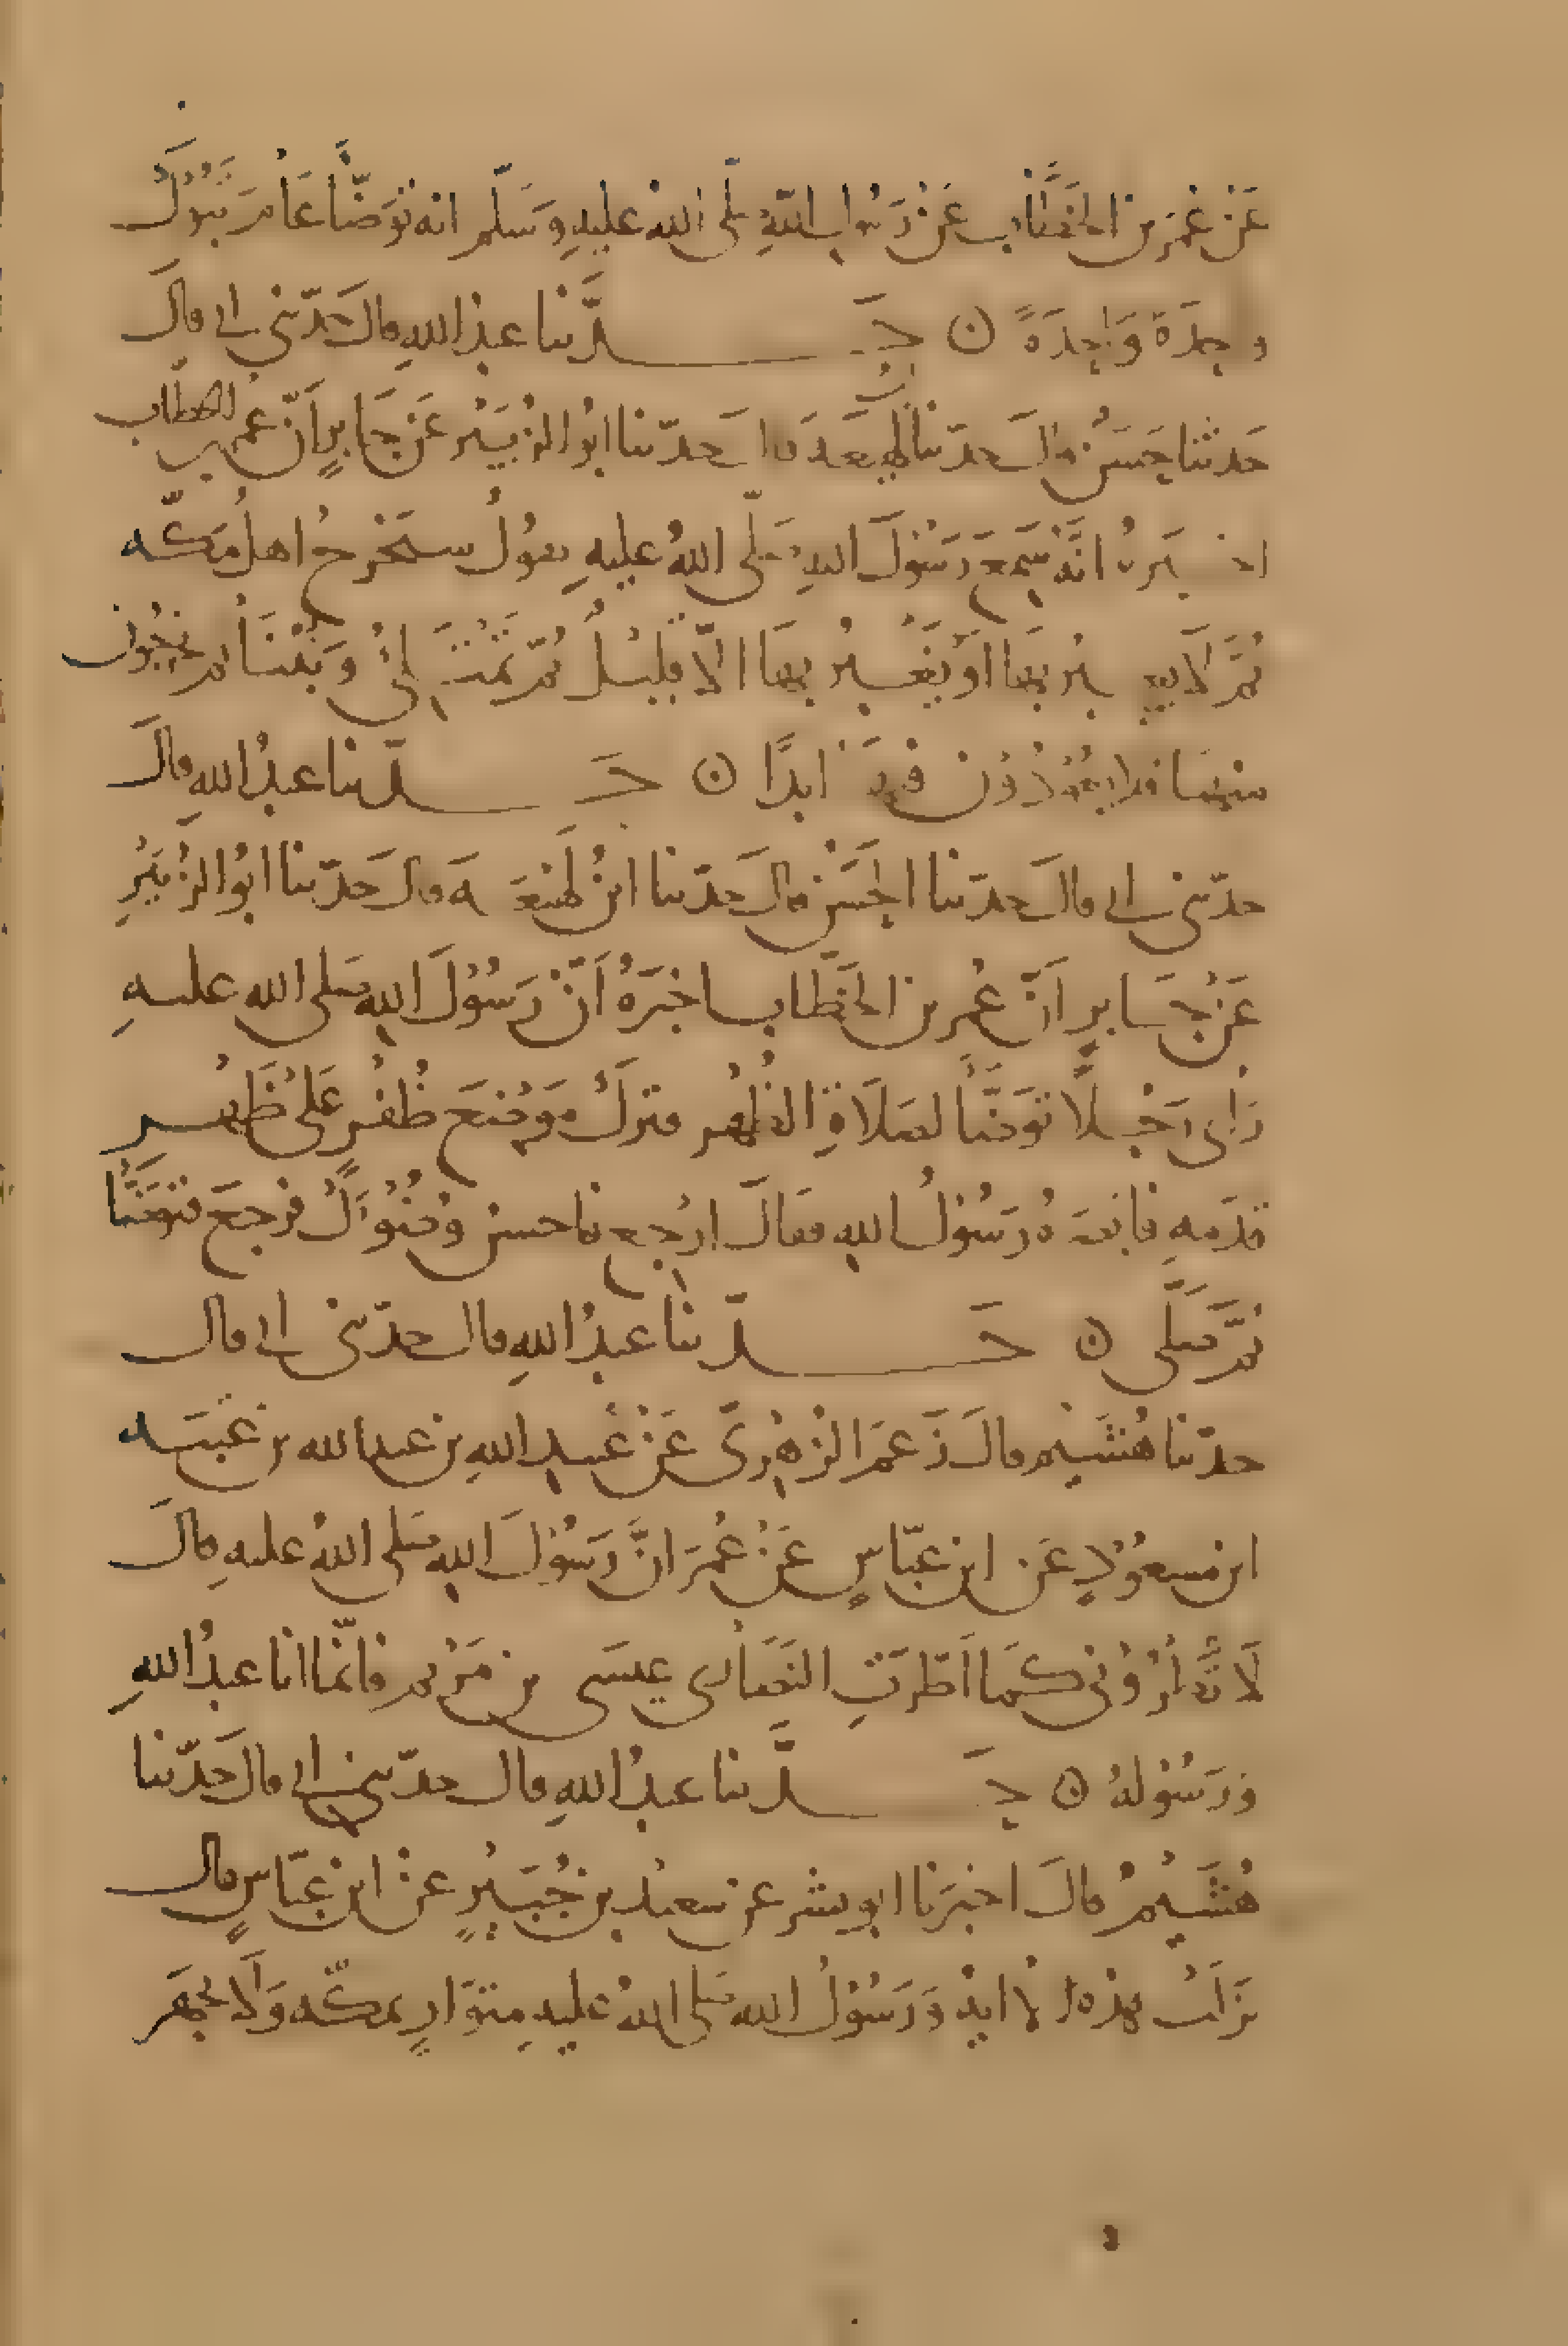 عَن عُمَر بن الخَطَّاب عَن رَسُول اللهِ صلَّى الله عليهِ وَسَلَّم انه تَوَضَّأ عَامَ تَبُوكَ
وحِدَة وَاحِدَةً ن حَدَّثنا عبدُ اللهِ قال حَدّثني ابي قالَ
حَدثنا حَسَن قالَ حدثنا ابن لهيعَة قال حدّثنا ابُو الزُبَيْر عَن جَابرٍ اَنّ عُمر بن الخطاب
اخبَرهُ انَّهُ سَمِعَ رَسُولَ اللهِ صَلّى اللهُ عليهِ يقولُ سيَخْرجُ اهلُ مَكّه
ثُمَّ لَا يعبر بهَا اوْ يَعْبُر بهَا الّا قليلٌ ثُمّ تمتَلئُ وَتبْنَا ثم يخرجُون
منهَا فلا يعُودُون فيهَا ابدًا ن حَدّثنا عبدُ اللهِ قالَ
حدّثني ابي قالَ حدثنا الحَسَن قالَ حَدثنا ابنُ لَهيْعَة قال حَدّثنا ابُو الزُبَيْرِ
عَن جَابرٍ اَنّ عُمر بن الخَطّاب اخبَرَهُ اَنّ رَسُولَ اللهِ صَلى الله عليهِ
رَاى رَجُلًا تَوضَّأ لصَلَاةِ الظُهْر فترَكَ مَوْضِعَ ظُفُرٍ عَلى ظَهْرِ
قدَمهِ فابصَرَهُ رَسُولُ اللهِ فقالَ ارْجع فاحسنْ وُضُوءَكَ فرجعَ فتوضَّأ
ثمَّ صَلّى ن حَدّثنا عبدُ اللهِ قال حدّثني ابي قال
حدّثنا هُشَيْم قالَ زَعَمَ الزُهْرىّ عَن عُبيدِ اللهِ بن عبد الله بن عُتبَه
ابن مسعُودٍ عَن ابن عبّاسٍ عَن عُمَرَ انَّ رَسُولَ اللهِ صَلى اللهُ عليهِ قالَ
لَا تُطْرُوني كمَا اَطْرَتِ النصَارى عيسَى بن مَرْيم فانّما انا عبدُ اللهِ
وَرَسُولهُ ن حَدَّثنا عبدُ اللهِ قال حدّثني ابي قال حَدّثنا
هُشَيْمٌ قالَ اخبَرَنا ابو بشر عن سعيْد بن جُبَيْرٍ عنْ ابن عبّاسٍ قال
نزلَتْ هذه الاية وَرَسُولُ الله صَلى اللهُ عليهِ متوَارٍ بمكّه وَلَا تجهَر